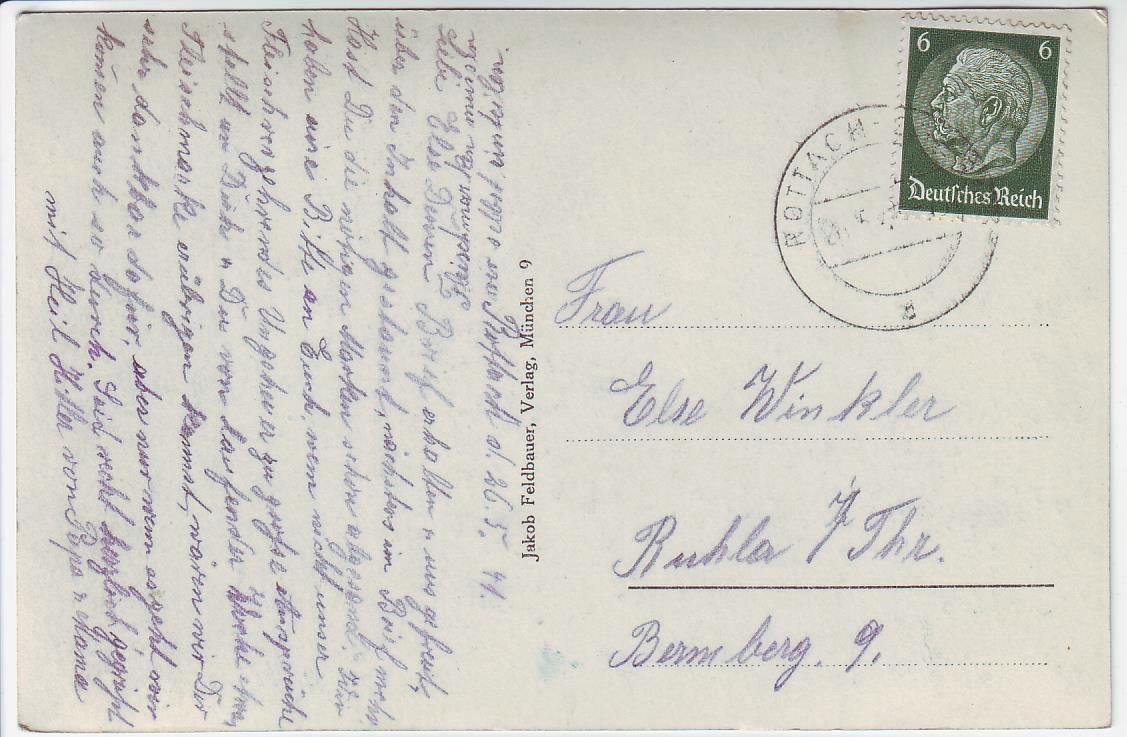 Rottach d. 26.5.41.
Liebe Else Deinen Brief erhalten u uns gefreut,
über den Inhalt gestaunt, nächstens im Brief mehr
Hast Du die nötigen Marken schon abgesandt. Wir
haben eine Bitte an Euch, wenn nicht unser
Fleischverzehrendes Ungeheuer zu große Ansprüche
stellt an Dich u Du von laufender Woche etwas
Fleischmarke erübrigen kannst, wären wir Dir
sehr dankbar dafür, aber nur wenn es geht wir
kommen auch so durch. Seid recht herzlich gegrüßt
mit Heil Hitler von Papa u Mama
Jakob Feldbauer, Verlag, München 9
6 6
Deutsches Reich
ROTTACH-
Frau
Else Winkler
Ruhla / Thr.
Bermberg. 9.